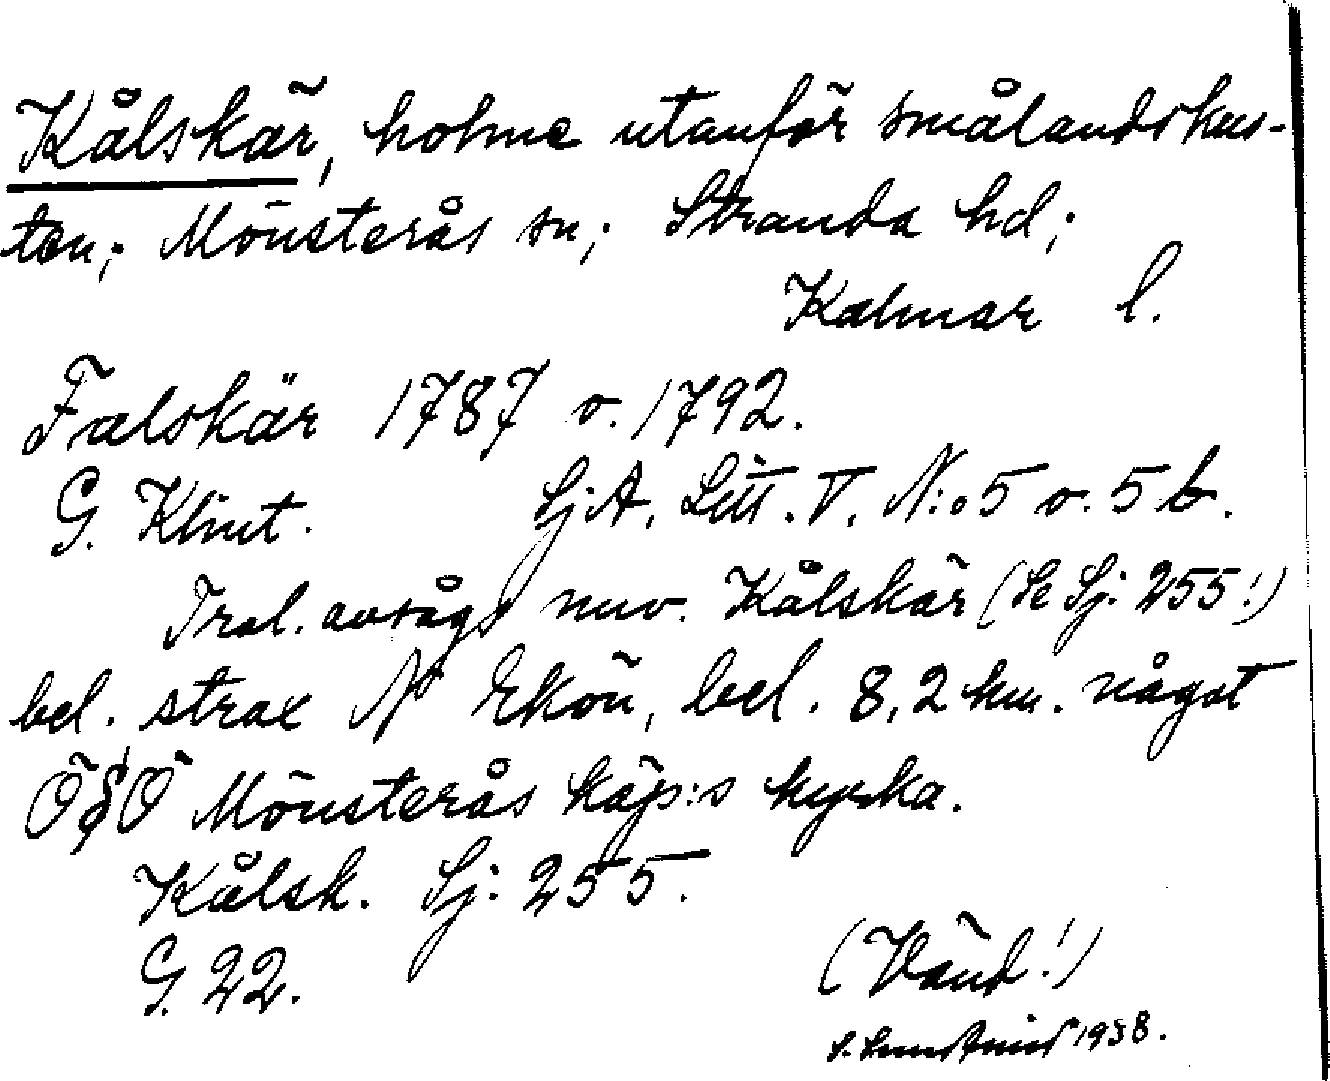 Kålskär, holme utanför smålandskus-
ten; Mönsterås sn; Stranda hd;
Kalmar l.
Falskär 1787 o. 1792.
G. Klint. SjA, Litt. V, N:o 5 o. 5 b.
Trol. avsågs nuv. Kålskär (Se Sj: 255!)
bel. strax N Ekön, bel. 8,2 km. något
Ö§Ö Mönsterås köp:s kyrka.
Kålsk. Sj: 255.
G. 22.
(Vänd!)
1938.